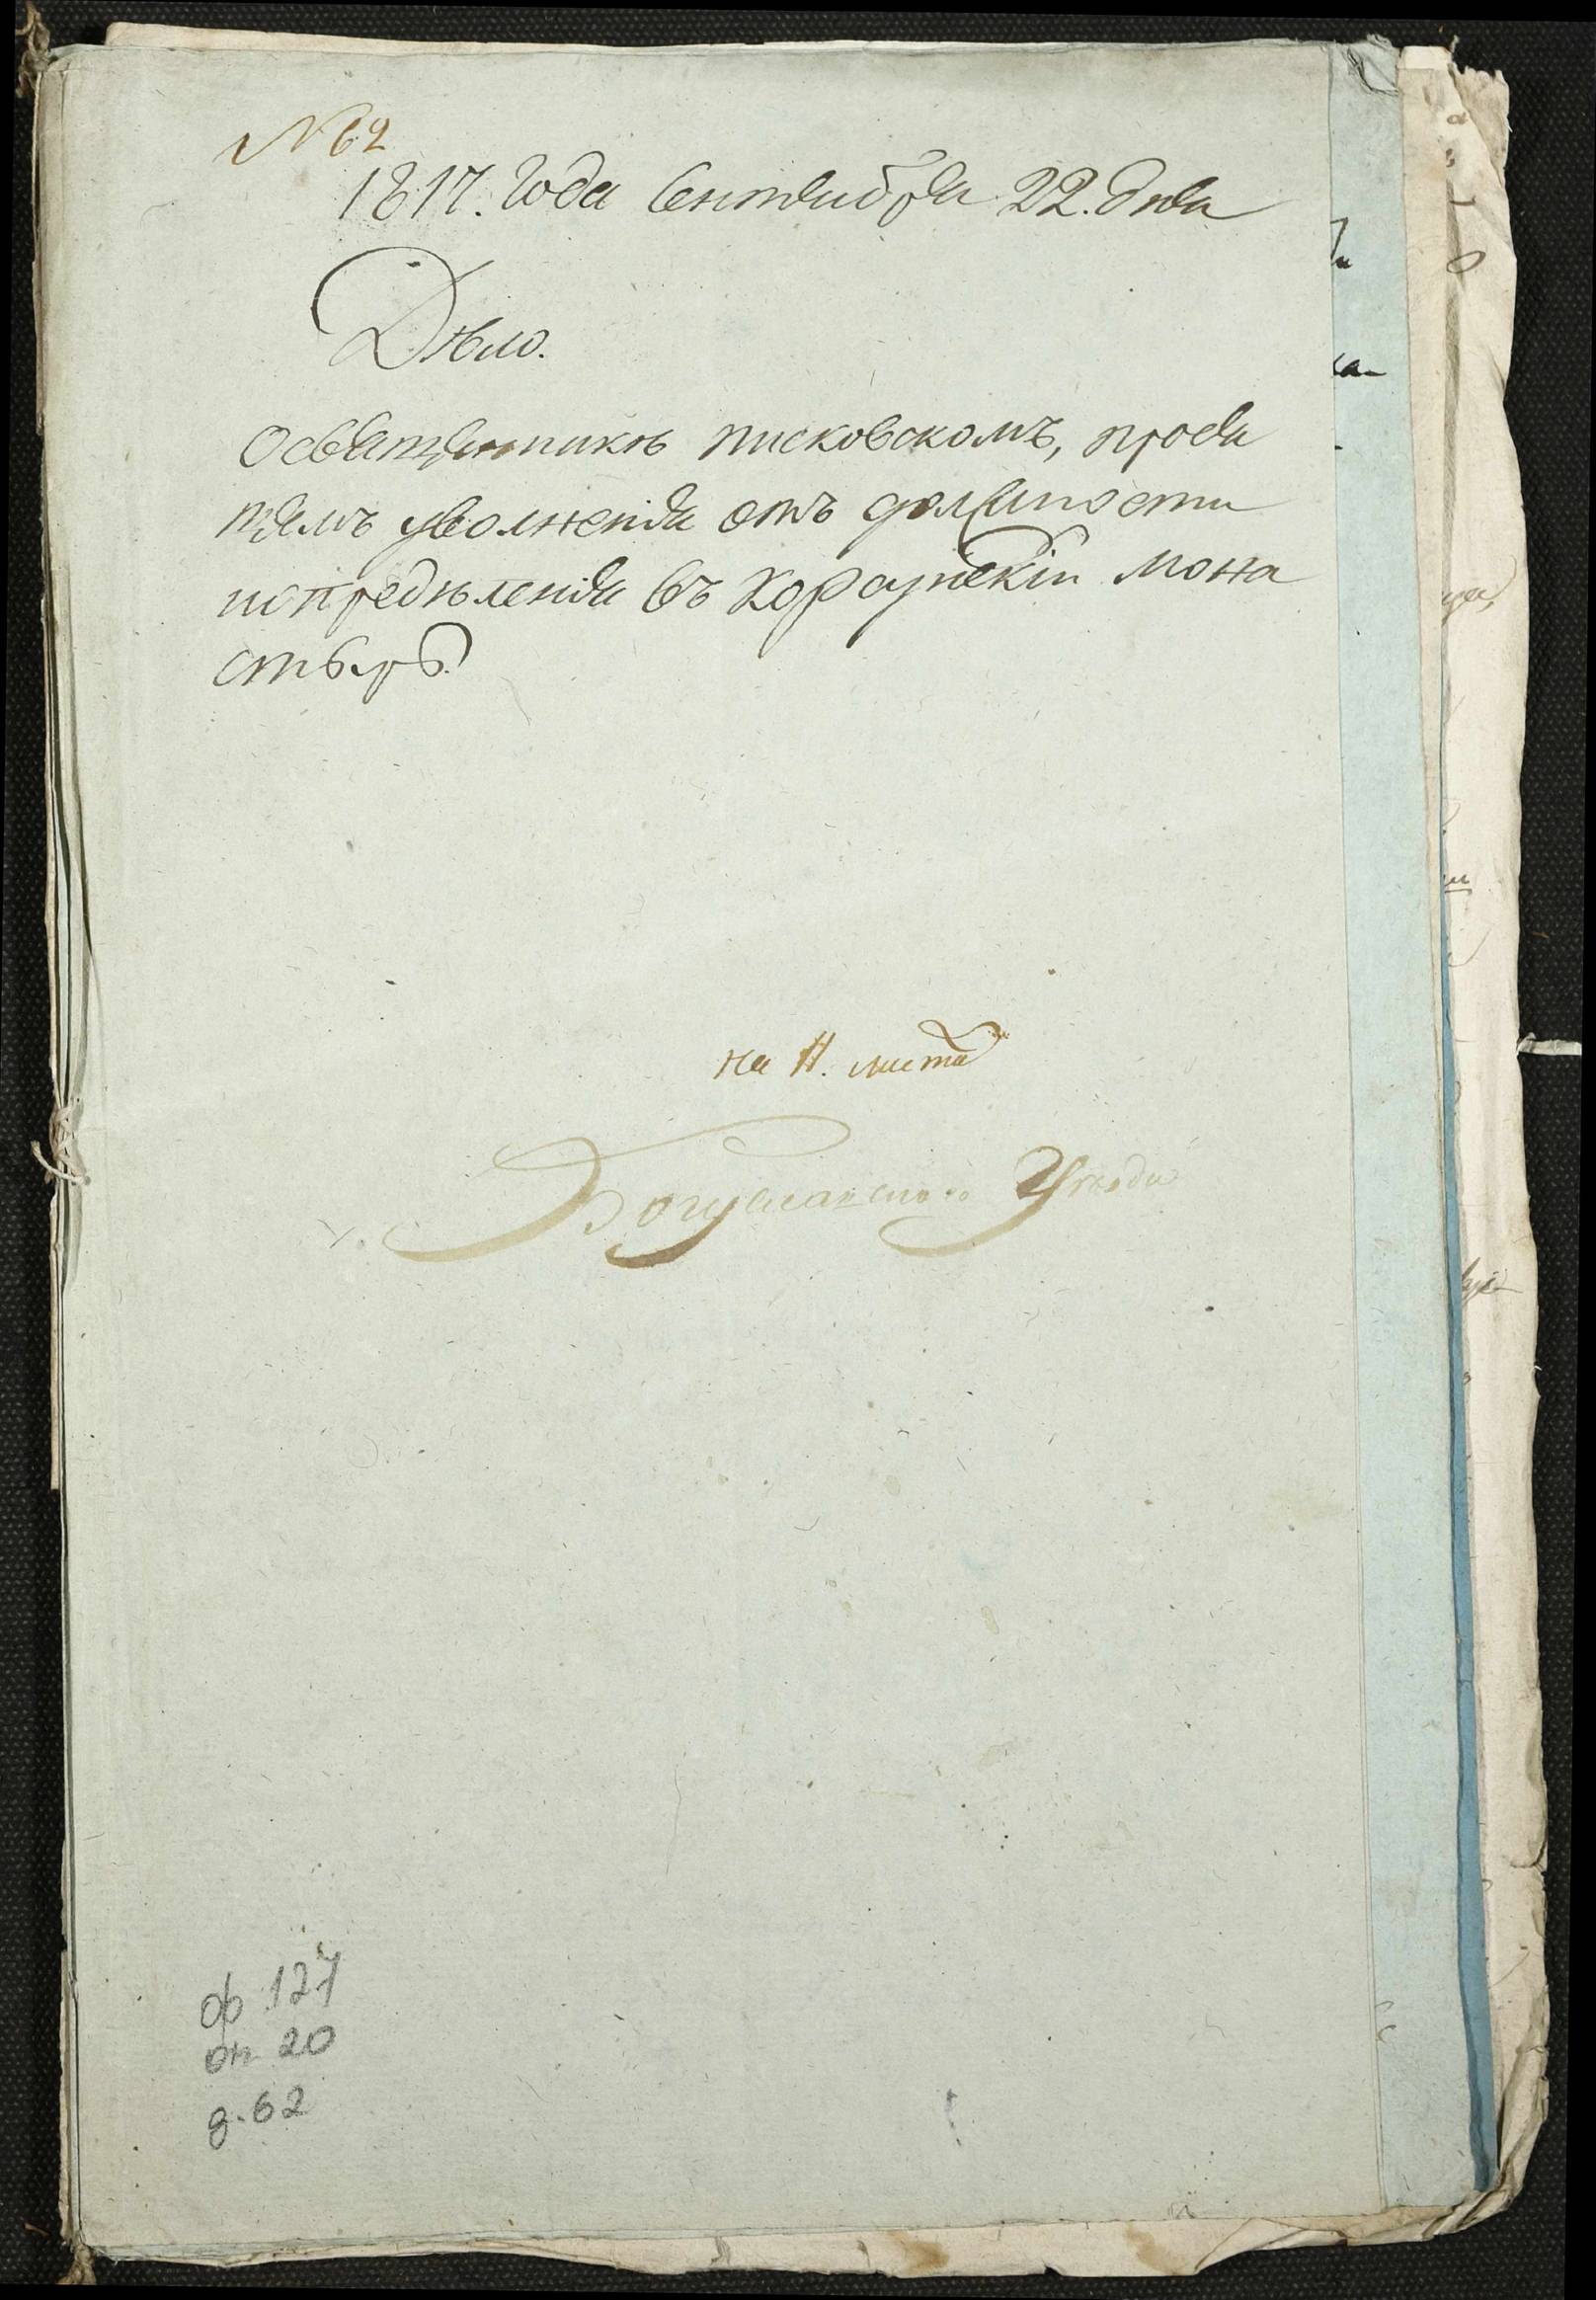 № 62
1817. Года Сентября 22. дня
Дѣло.
Освященникѣ писковскомъ, прося
щемъ уволненія отъ должности
иопредѣленія въ Корсунскій мона
стырь.
на 11. листа
Богуславского Уѣзда
ф 127
оп 20
д. 62